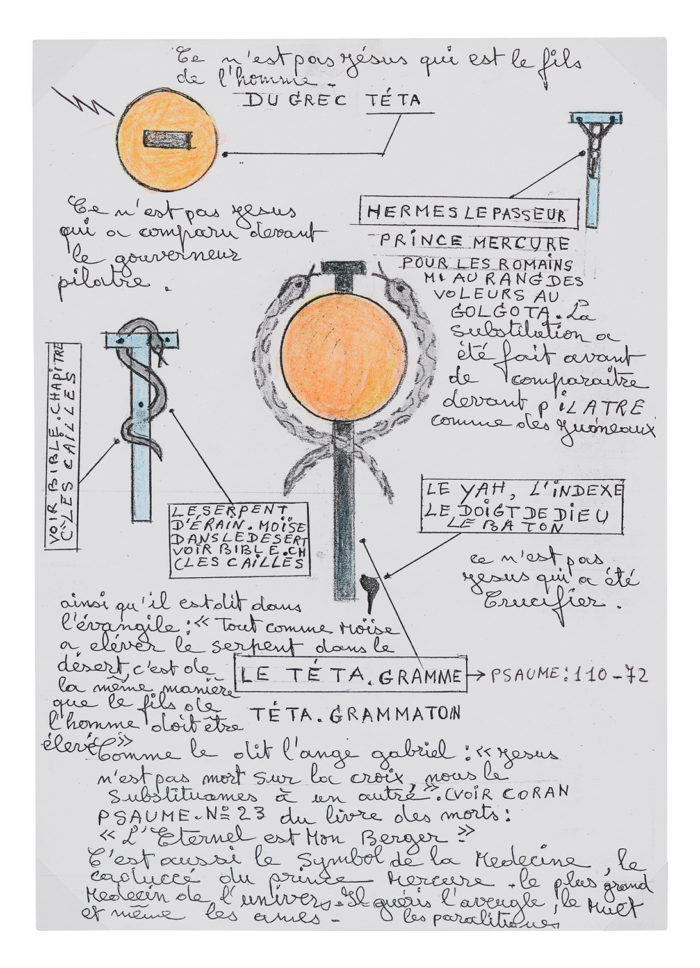 Ce n'est pas yésus qui est le fils
de l'homme.
DU GREC TÉTA
HERMES LE PASSEUR
PRINCE MERCURE
POUR LES ROMAINS
Mi AU RANG DES
VOLEURS AU
GOLGOTA. La
Substitution a
été fait avant
de comparaître
devant PiLATRE
comme des yuméneaux
Ce n'est pas yesus
qui a comparu devant
le gouverneur
pilatre.
VOIR BIBLE. CHAPITRE
C"LES CAILLES
LE SERPENT
D'ÉRAIN. MOÏSE
DANS LE DESERT
VOIR BIBLE. CH
(LES CAILLES
LE YAH, L'INDEXE
LE DOIGT DE DIEU
LE BATON
ce n'est pas
yesus qui a été
Crucifier.
ainsi qu'il est dit dans
l'évangile : « Tout comme Moïse
a eléver le serpent dans le
désert, c'est de
la même manière
que le fils de
l'homme doit être
élevé »
LE TÉTA. GRAMME → PSAUME : 110 - 72
TÉTA. GRAMMATON
Comme le dit l'ange gabriel : « yesus
n'est pas mort sur la croix, nous le
Substituames à un autre ». (VOIR CORAN
PSAUME. Nº 23 du livre des morts :
« L'Eternel est Mon Berger »
C'est aussi le Symbol de la Medecine, le
caduccé du prince Mercure. le plus grand
Medecin de l'univers. Il guéris l'aveugle, le Muet
et même les ames - les paralitiques